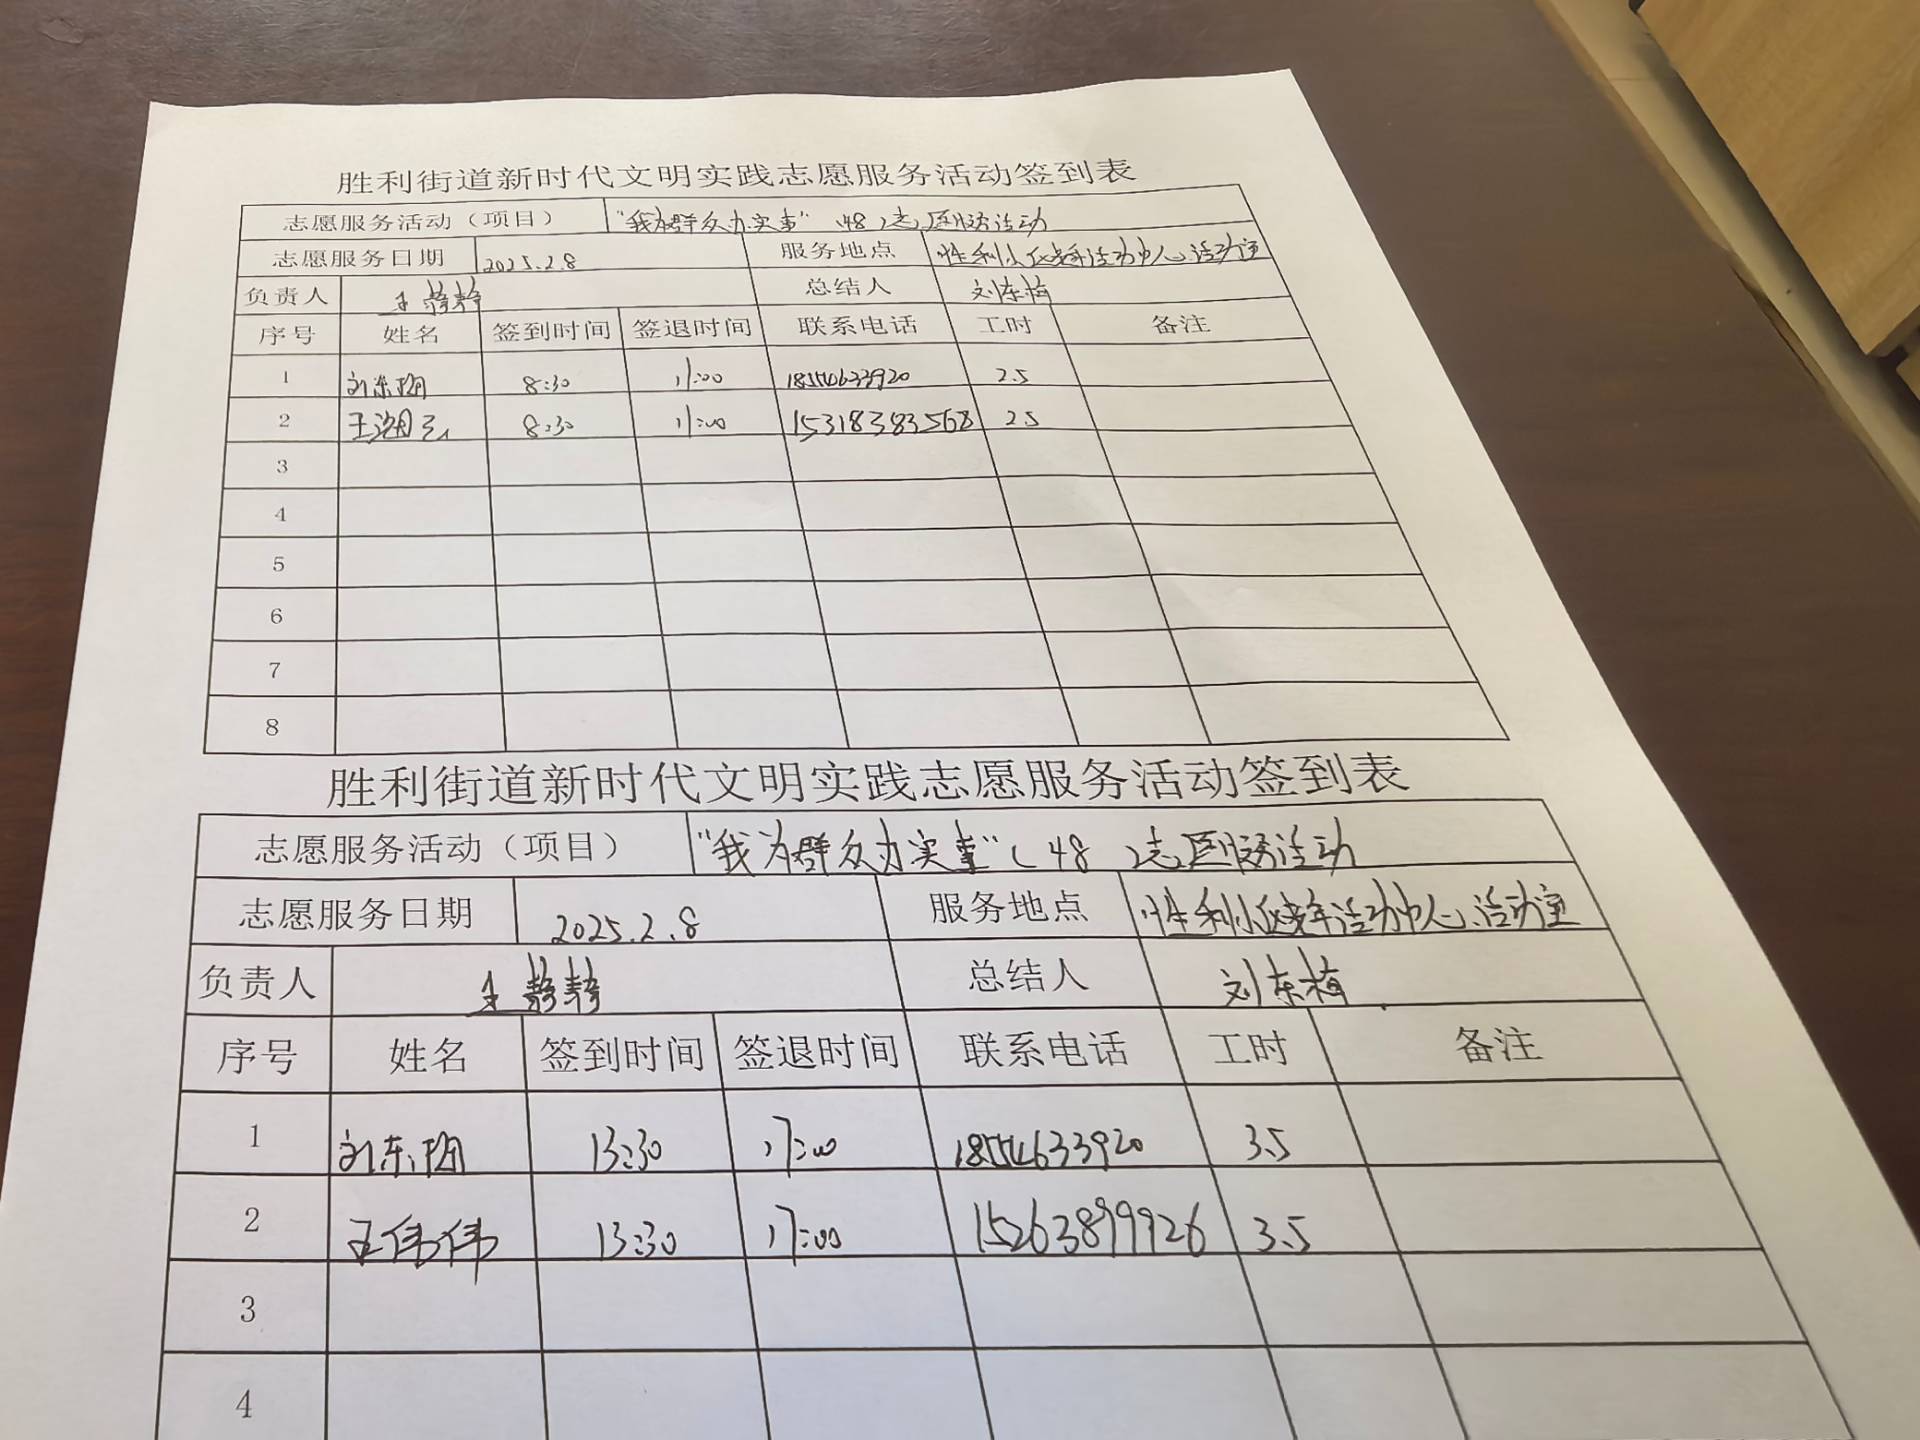 胜利街道新时代文明实践志愿服务活动签到表
志愿服务活动（项目） “我为群众办实事”（48）志愿服务活动
志愿服务日期 2025.2.8 服务地点 胜利小区老年活动中心活动室
负责人 王静静 总结人 刘东梅
序号 姓名 签到时间 签退时间 联系电话 工时 备注
1 刘东梅 8:30 11:00 2.5
2 8:30 11:00 15318383568 2.5
3
4
5
6
7
8
胜利街道新时代文明实践志愿服务活动签到表
志愿服务活动（项目） “我为群众办实事”（48）志愿服务活动
志愿服务日期 2025.2.8 服务地点 胜利小区老年活动中心活动室
负责人 王静静 总结人 刘东梅
序号 姓名 签到时间 签退时间 联系电话 工时 备注
1 刘东梅 13:30 17:00 3.5
2 王伟伟 13:30 17:00 15263899926 3.5
3
4